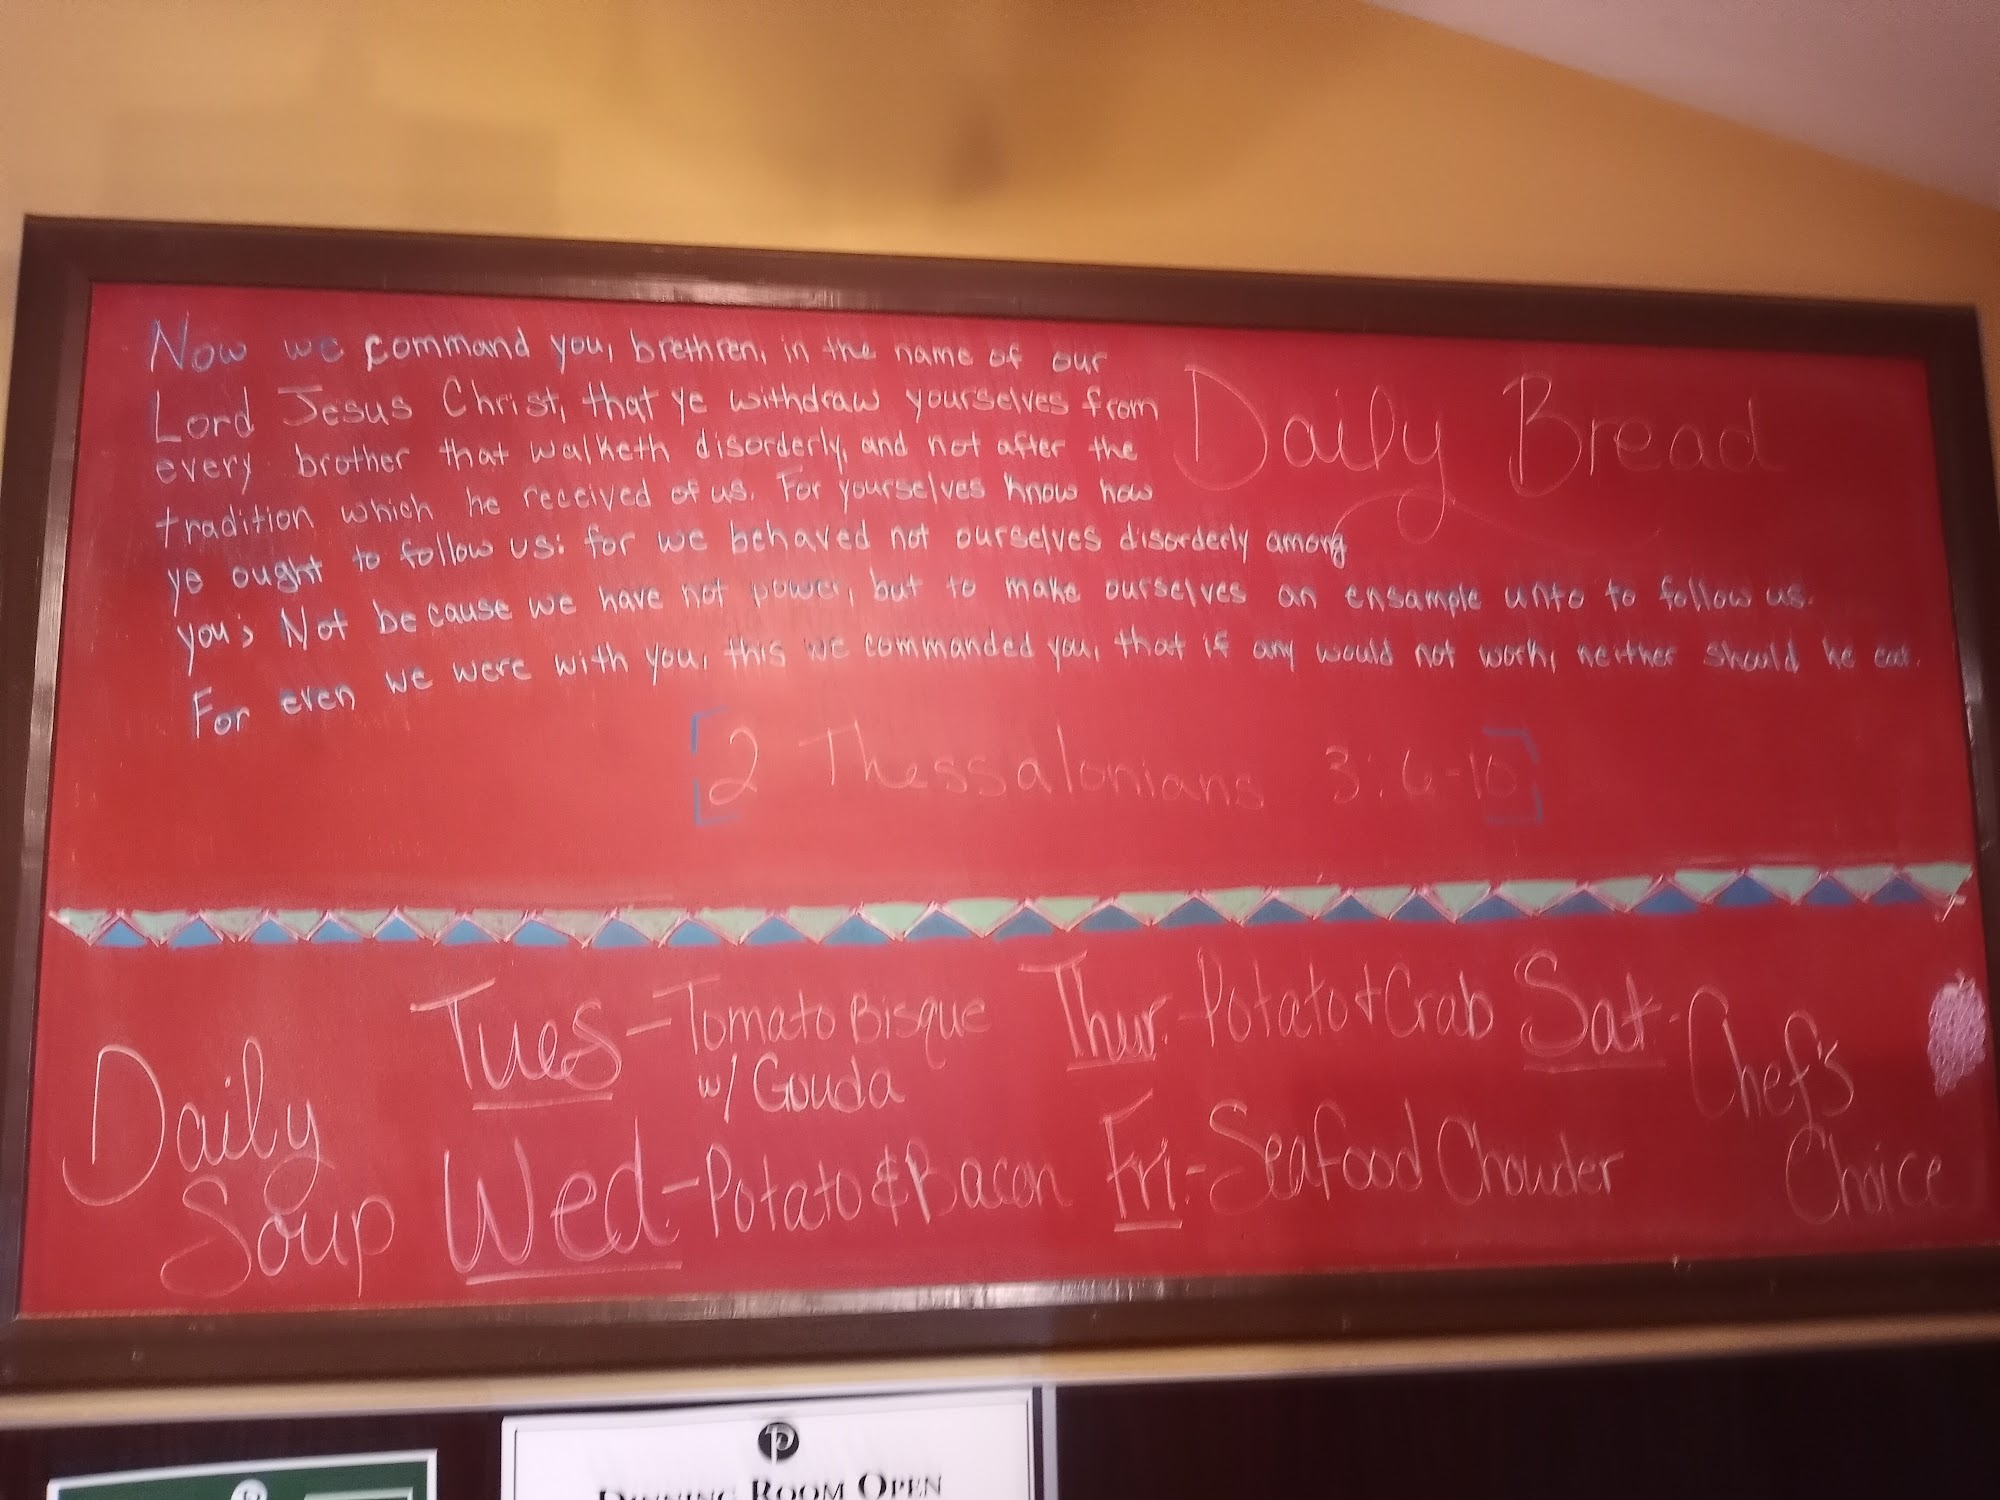 Now we command you, brethren, in the name of our
Lord Jesus Christ, that ye withdraw yourselves from
every brother that walketh disorderly, and not after the
tradition which he received of us. For yourselves know how
ye ought to follow us: for we behaved not ourselves disorderly among
you; Not because we have not power, but to make ourselves an ensample unto to follow us.
For even we were with you, this we commanded you, that if any would not work, neither should he eat.
Daily Bread
[2 Thessalonians 3:6-10]
Daily
Soup
Tues-Tomato Bisque
w/ Gouda
Wed.-Potato & Bacon
Thur.-Potato + Crab
Fri.-Seafood Chowder
Sat.-Chef's
Choice
P
DINNING ROOM OPEN